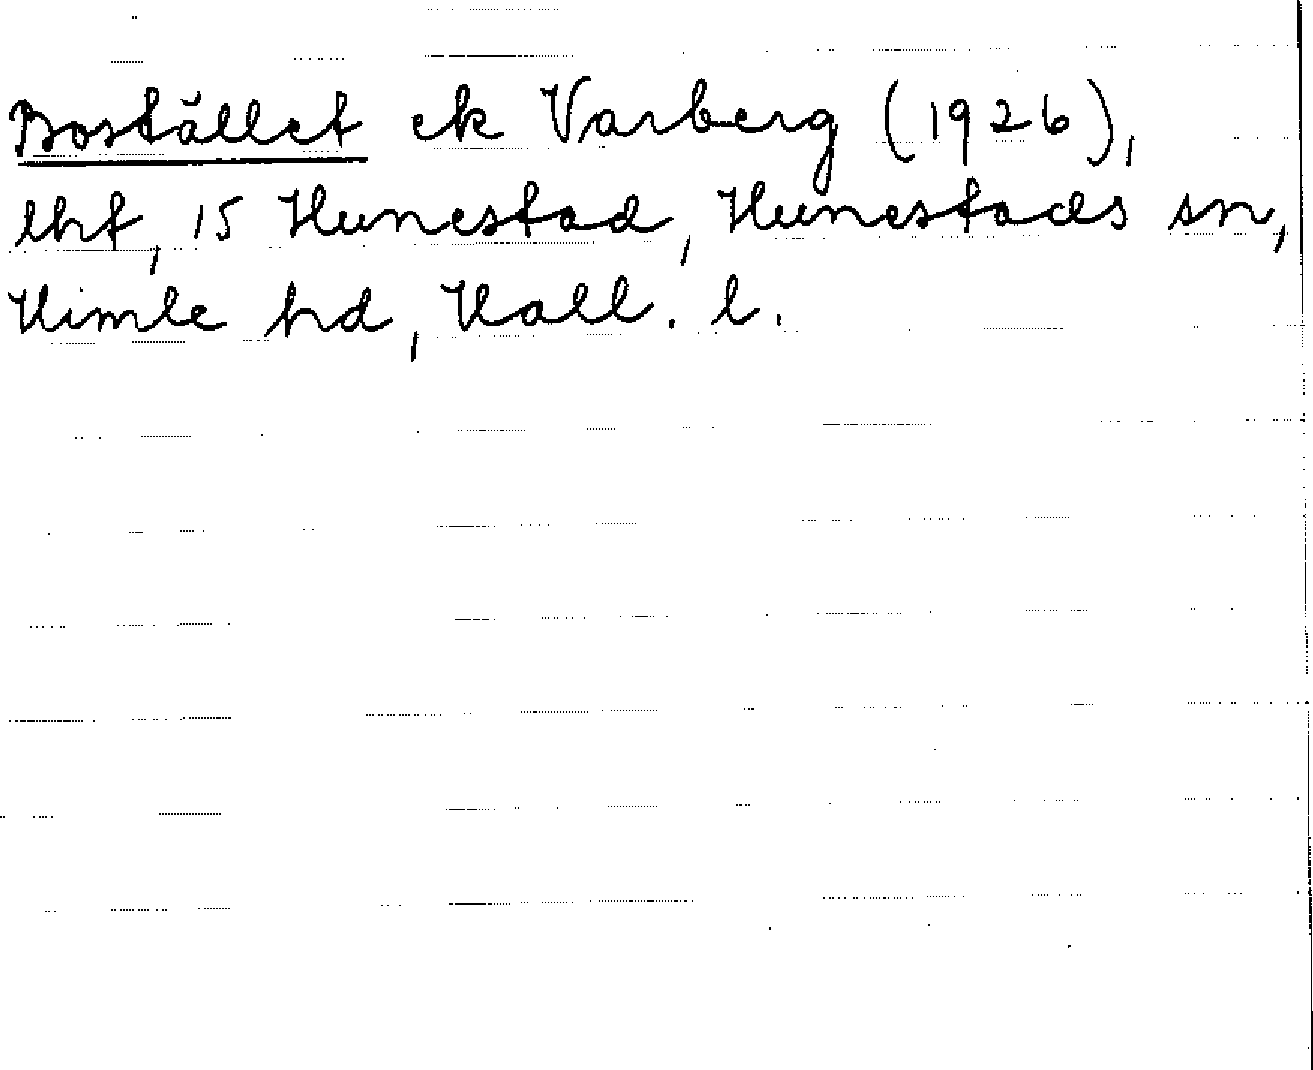 Bostället ek Varberg (1926),
lht, 15 Hunestad, Hunestads sn,
Himle hd, Hall. l.